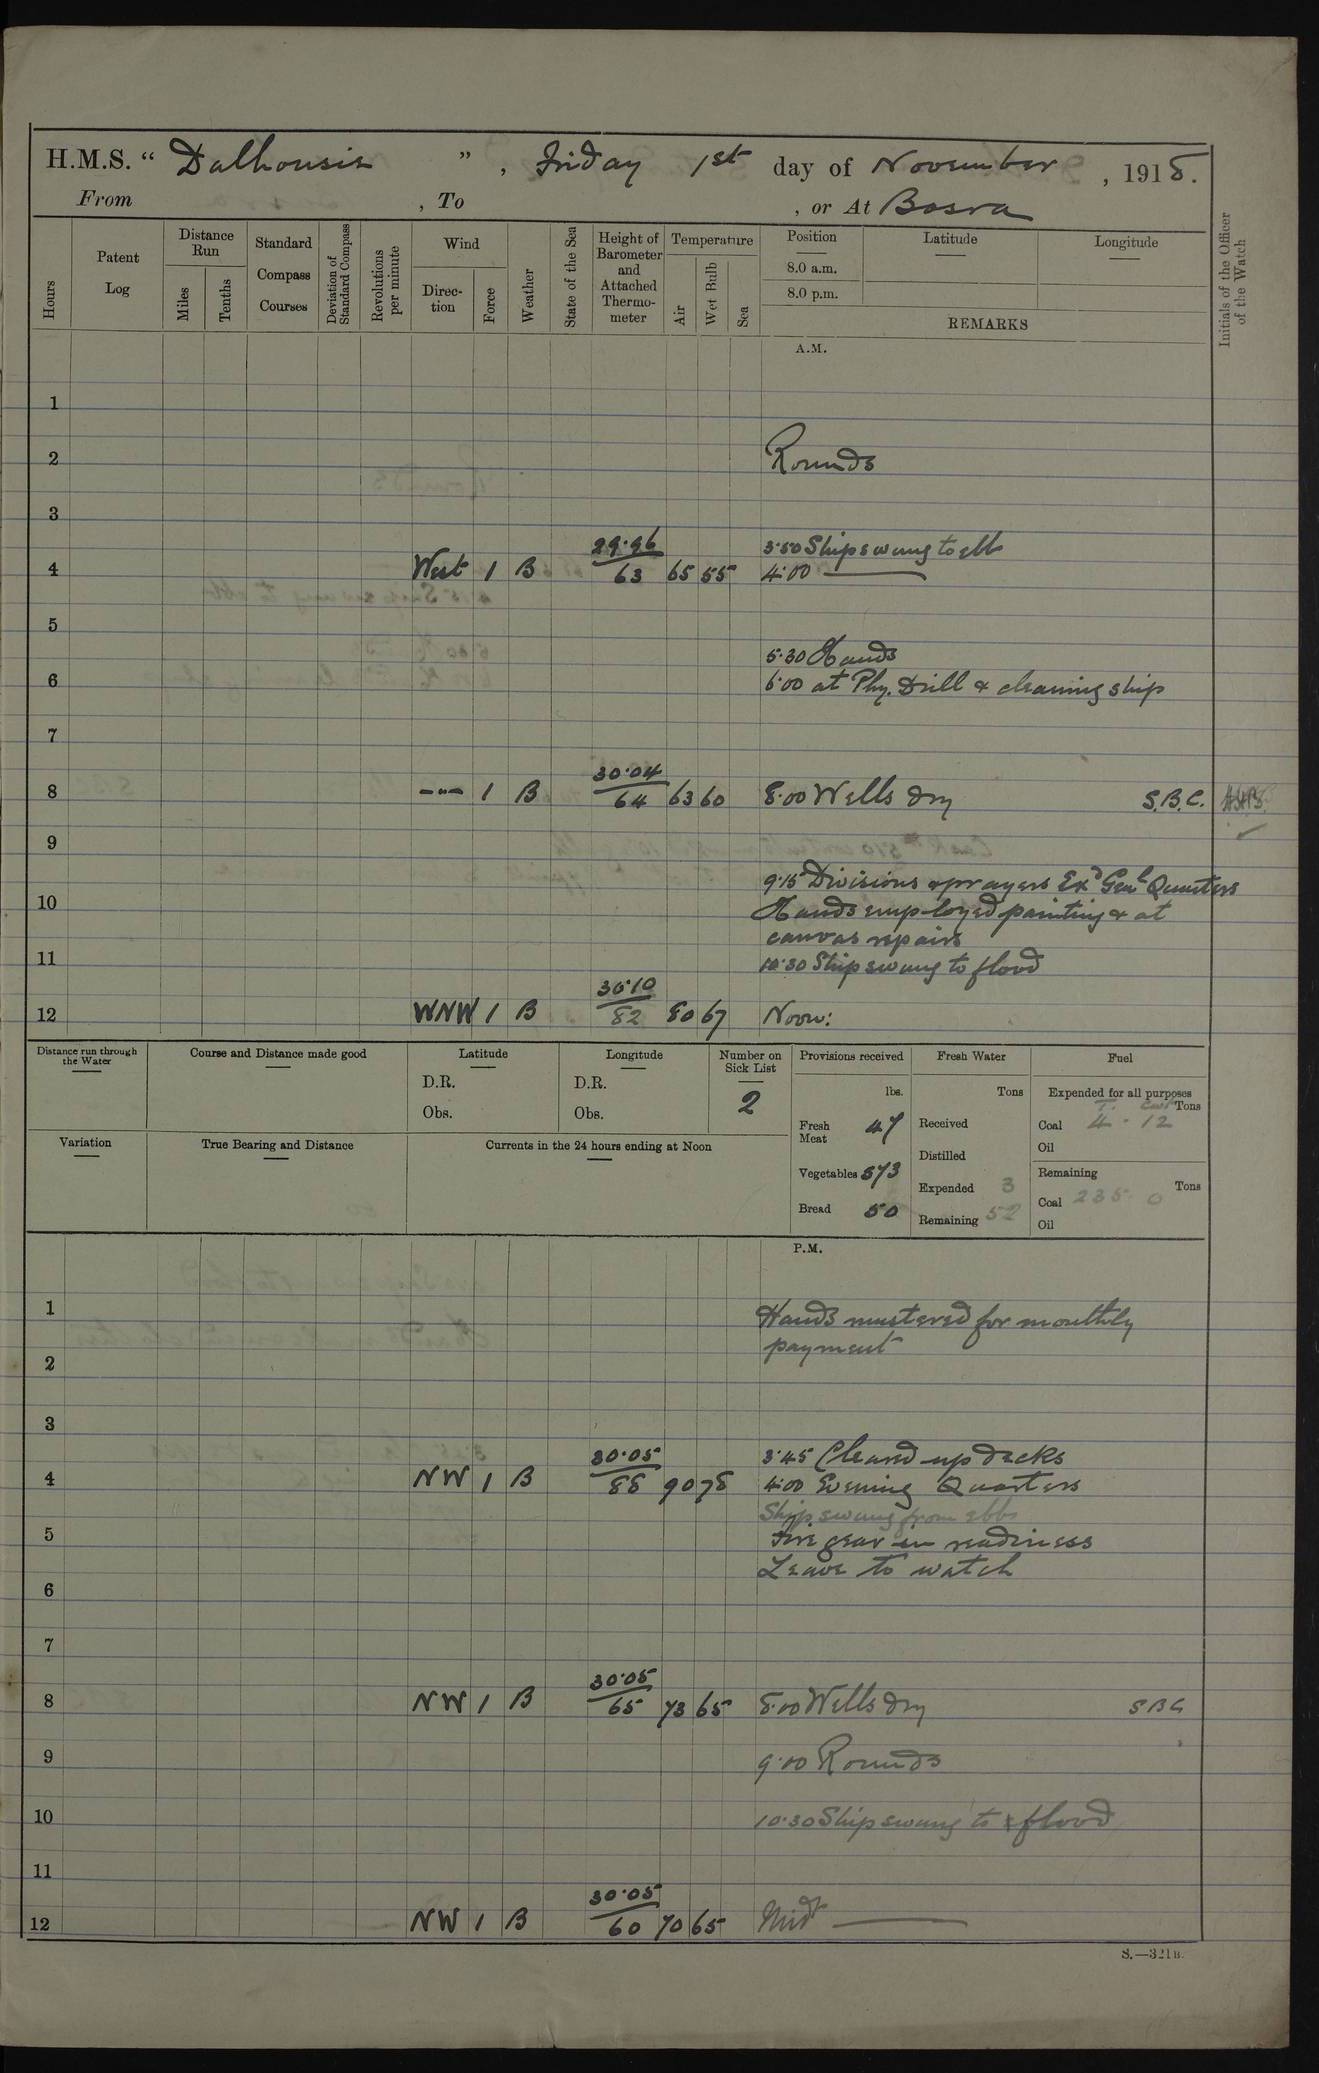 H.M.S. “ Dalhousie ” , Friday 1st day of November , 1918.
From , To , or At Basra
Hours
Patent Log
Distance Run
Miles
Tenths
Standard Compass Courses
Deviation of Standard Compass
Revolutions per minute
Wind
Direction
Force
Weather
State of the Sea
Height of Barometer and Attached Thermometer
Temperature
Air
Wet Bulb
Sea
Position
8.0 a.m.
8.0 p.m.
Latitude
Longitude
REMARKS
Initials of the Officer of the Watch
A.M.
1
2 Rounds
3
29·96 3·50 Ship swung to ebb
4 West 1 B 63 65 55 4·00 ———
5
5·30 Hands
6 6·00 at Phy. Drill & cleaning ship
7
30·04
8 -"- 1 B 64 63 60 8·00 Wells dry S.B.C.
9
9·15 Divisions & prayers Exd Genl Quarters
10 Hands employed painting & at
canvas repairs
11 10·30 Ship swung to flood
30·10
12 WNW 1 B 82 80 67 Noon:
Distance run through the Water
Course and Distance made good
Latitude
D.R.
Obs.
Longitude
D.R.
Obs.
Number on Sick List
2
Provisions received
lbs.
Fresh Meat 47
Vegetables 573
Bread 50
Fresh Water
Tons
Received
Distilled
Expended 3
Remaining 52
Fuel
Expended for all purposes
T. Cwt Tons
Coal 4 · 12
Oil
Remaining
Tons
Coal 235 0
Oil
Variation
True Bearing and Distance
Currents in the 24 hours ending at Noon
P.M.
1 Hands mustered for monthly
payment
2
3
30·05 3·45 Cleared up decks
4 NW 1 B 88 90 78 4·00 Evening Quarters
Ship swung from ebb
5 Fire gear in readiness
Leave to watch
6
7
30·05
8 NW 1 B 65 73 65 8·00 Wells dry SBC
9 9·00 Rounds
10 10·30 Ship swung to flood
11
30·05
12 NW 1 B 60 70 65 Midt ———
S.—321B.